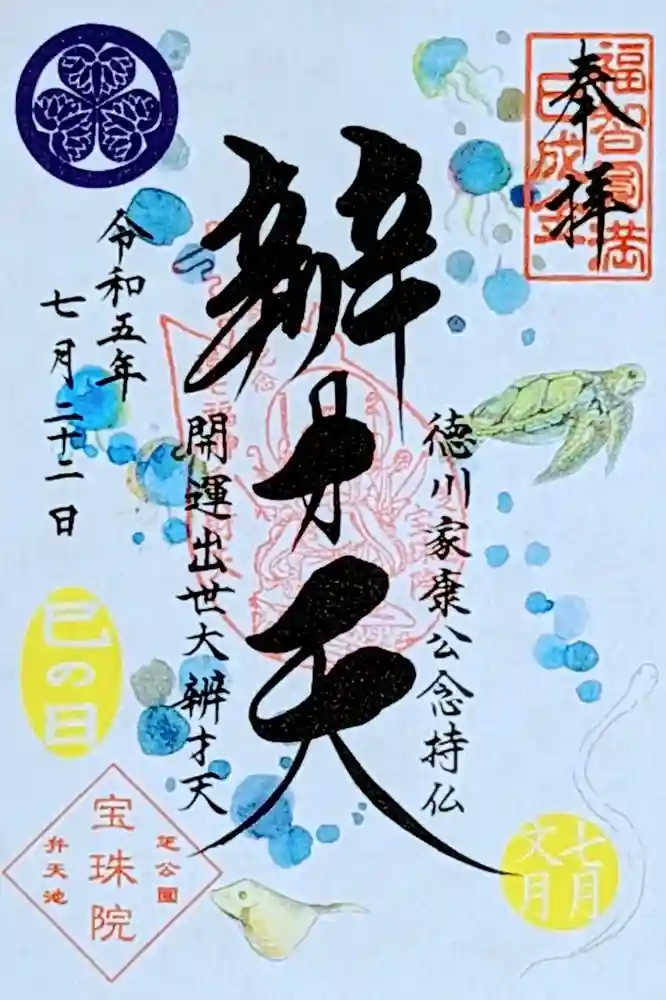 奉拝
福智円満
巳成金
徳川家康公念持仏
辨才天
開運出世大辨才天
令和五年
七月二十二日
巳の日
七月
文月
芝公園
宝珠院
弁天池